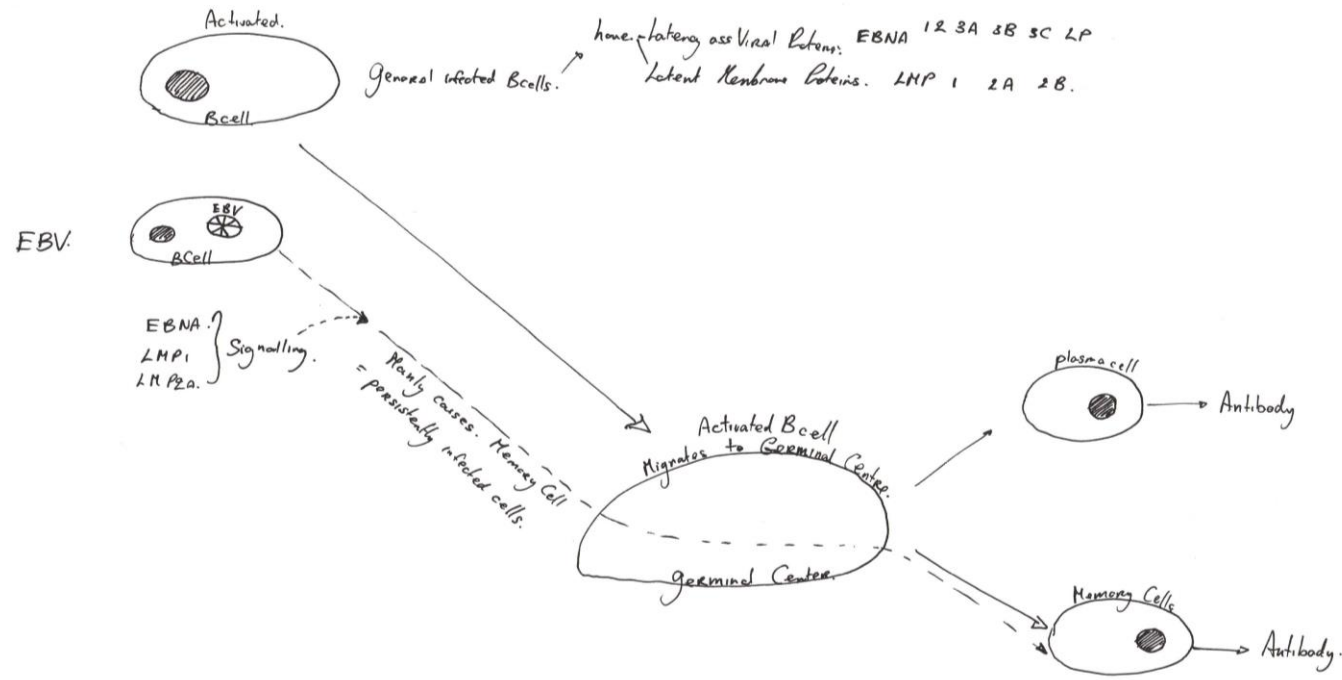 Activated.
B cell
General infected B cells.
have latency ass Viral Proteins. EBNA 1 2 3A 3B 3C LP
Latent Membrane Proteins. LMP 1 2A 2B.
EBV.
EBV
BCell
EBNA.
LMP1
LMP2a.
Signalling.
Mainly causes. Memory Cell
= persistently infected cells.
Activated B cell
Migrates to Germinal Centre.
germinal Centere.
plasma cell
Antibody
Memory Cells
Antibody.